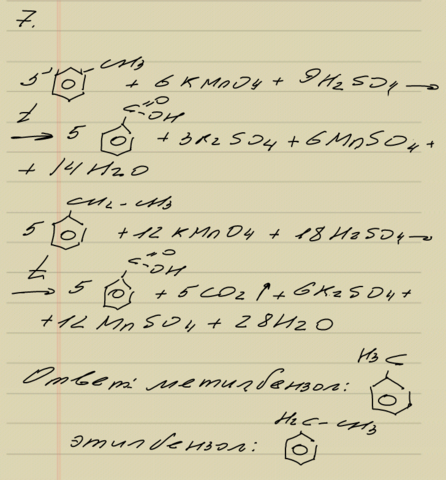 7.
5 CH3 + 6 KMnO4 + 9H2SO4 →
t → 5 C=O OH + 3K2SO4 + 6MnSO4 +
+ 14H2O
5 CH2-CH3 + 12 KMnO4 + 18H2SO4 →
t → 5 C=O OH + 5CO2↑ + 6K2SO4 +
+ 12 MnSO4 + 28H2O
Ответ: метилбензол: H3C
этилбензол: H2C-CH3